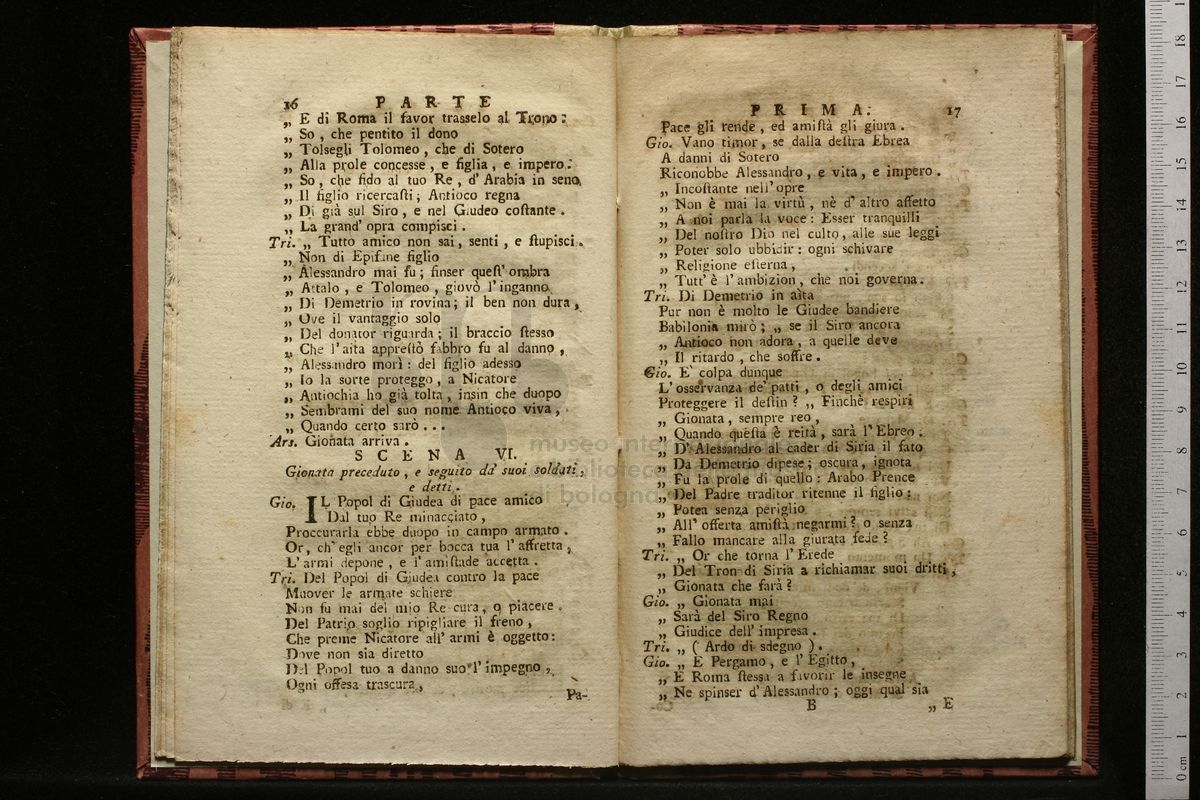 16 PARTE
„ E di Roma il favor trasselo al Trono:
„ So, che pentito il dono
„ Tolsegli Tolomeo, che di Sotero
„ Alla prole concesse, e figlia, e impero.
„ So, che fido al tuo Re, d' Arabia in seno
„ Il figlio ricercaſti; Antioco regna
„ Di già sul Siro, e nel Giudeo coſtante.
„ La grand' opra compisci.
Tri. „ Tutto amico non sai, senti, e ſtupisci.
„ Non di Epifane figlio
„ Alessandro mai fu; finser queſt' ombra
„ Attalo, e Tolomeo, giovò l' inganno
„ Di Demetrio in rovina; il ben non dura,
„ Ove il vantaggio solo
„ Del donator riguarda; il braccio ſtesso
„ Che l' aita appreſtò fabbro fu al danno,
„ Alessandro morì: del figlio adesso
„ Io la sorte proteggo, a Nicatore
„ Antiochia ho già tolta, insin che duopo
„ Sembrami del suo nome Antioco viva,
„ Quando certo sarò...
Ars. Gionata arriva.
SCENA VI.
Gionata preceduto, e seguito da' suoi soldati,
e detti.
Gio. IL Popol di Giudea di pace amico
Dal tuo Re minacciato,
Proccurarla ebbe duopo in campo armato.
Or, ch' egli ancor per bocca tua l' affretta,
L' armi depone, e l' amiſtade accetta.
Tri. Del Popol di Giudea contro la pace
Muover le armate schiere
Non fu mai del mio Re cura, o piacere.
Del Patrio soglio ripigliare il freno,
Che preme Nicatore all' armi è oggetto:
Dove non sia diretto
Del Popol tuo a danno suo l' impegno,
Ogni offesa trascura,
Pa-
PRIMA. 17
Pace gli rende, ed amiſtà gli giura.
Gio. Vano timor, se dalla deſtra Ebrea
A danni di Sotero
Riconobbe Alessandro, e vita, e impero.
„ Incoſtante nell' opre
„ Non è mai la virtù, nè d' altro affetto
„ A noi parla la voce: Esser tranquilli
„ Del noſtro Dio nel culto, alle sue leggi
„ Poter solo ubbidir: ogni schivare
„ Religione eſterna,
„ Tutt' è l' ambizion, che noi governa.
Tri. Di Demetrio in aìta
Pur non è molto le Giudee bandiere
Babilonia mirò; „ se il Siro ancora
„ Antioco non adora, a quelle deve
„ Il ritardo, che soffre.
Gio. E' colpa dunque
L' osservanza de' patti, o degli amici
Proteggere il deſtin? „ Finchè respiri
„ Gionata, sempre reo,
„ Quando queſta è reità, sarà l' Ebreo.
„ D' Alessandro al cader di Siria il fato
„ Da Demetrio dipese; oscura, ignota
„ Fu la prole di quello: Arabo Prence
„ Del Padre traditor ritenne il figlio:
„ Potea senza periglio
„ All' offerta amiſtà negarmi? o senza
„ Fallo mancare alla giurata fede?
Tri. „ Or che torna l' Erede
„ Del Tron di Siria a richiamar suoi dritti,
„ Gionata che farà?
Gio. „ Gionata mai
„ Sarà del Siro Regno
„ Giudice dell' impresa.
Tri. „ ( Ardo di sdegno ).
Gio. „ E Pergamo, e l' Egitto,
„ E Roma ſtessa a favorir le insegne
„ Ne spinser d' Alessandro; oggi qual sia
B „ E